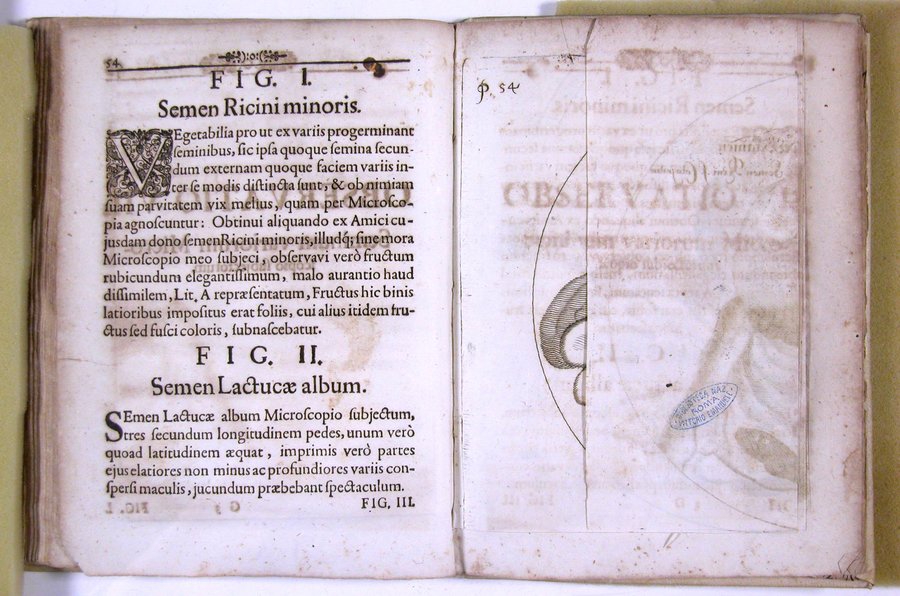 54.
FIG. I.
Semen Ricini minoris.
VEgetabilia pro ut ex variis progerminant
seminibus, sic ipsa quoque semina secun-
dum externam quoque faciem variis in-
ter se modis distincta sunt, & ob nimiam
suam parvitatem vix melius, quam per Microsco-
pia agnoscuntur: Obtinui aliquando ex Amici cu-
jusdam dono semenRicini minoris, illudq; sine mora
Microscopio meo subjeci, observavi verò fructum
rubicundum elegantissimum, malo aurantio haud
dissimilem, Lit. A repræsentatum, Fructus hic binis
latioribus impositus erat foliis, cui alius itidem fru-
ctus sed fusci coloris, subnascebatur.
FIG. II.
Semen Lactucæ album.
SEmen Lactucæ album Microscopio subjectum,
tres secundum longitudinem pedes, unum verò
quoad latitudinem æquat, imprimis verò partes
ejus elatiores non minus ac profundiores variis con-
spersi maculis, jucundum præbebant spectaculum.
FIG. III.
p. 54
BIBLIOTECA NAZ
ROMA
VITTORIO EMANUELE